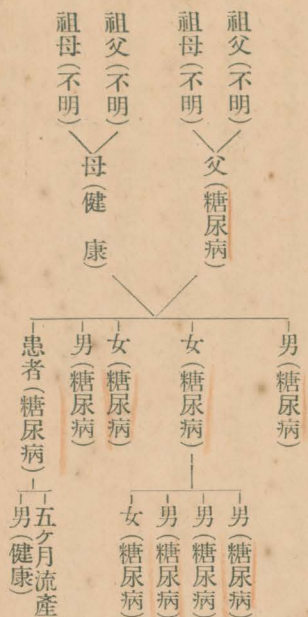 祖父(不明)
祖母(不明)
祖父(不明)
祖母(不明)
父(糖尿病)
母(健康)
男(糖尿病)
女(糖尿病)
女(糖尿病)
男(糖尿病)
患者(糖尿病)
男(糖尿病)
男(糖尿病)
男(糖尿病)
女(糖尿病)
五ケ月流產
男(健康)